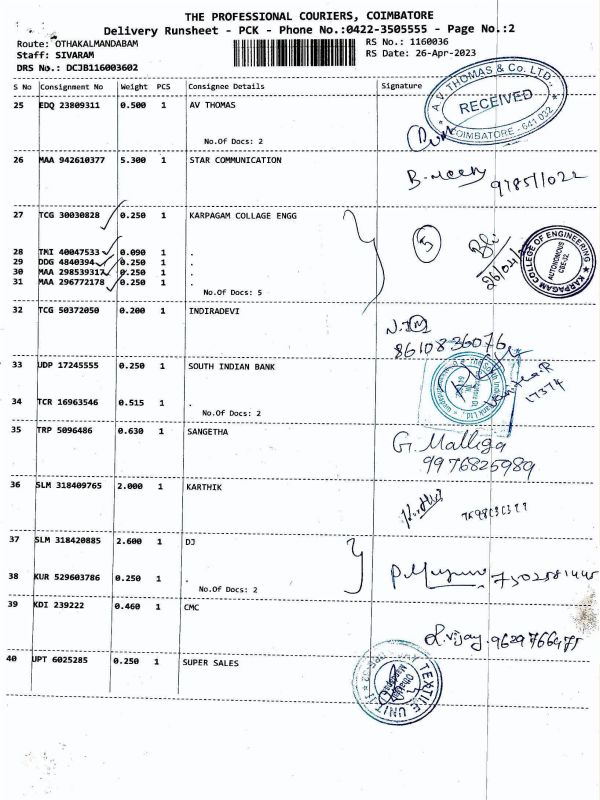 THE PROFESSIONAL COURIERS, COIMBATORE
Delivery Runsheet - PCK - Phone No.:0422-3505555 - Page No.:2
Route: OTHAKALMANDABAM RS No.: 1160036
Staff: SIVARAM RS Date: 26-Apr-2023
DRS No.: DCJB116003602
S No Consignment No Weight PCS Consignee Details Signature
25 EDQ 23809311 0.500 1 AV THOMAS
No.Of Docs: 2
A.V. THOMAS & Co. LTD.,
RECEIVED
COIMBATORE - 641 032
26 MAA 942610377 5.300 1 STAR COMMUNICATION
27 TCG 30030828 0.250 1 KARPAGAM COLLAGE ENGG
28 TMI 40047533 0.090 1 .
29 DDG 4840394 0.250 1 .
30 MAA 298539317 0.250 1 .
31 MAA 296772178 0.250 1 .
No.Of Docs: 5
5
KARPAGAM COLLEGE OF ENGINEERING
AUTONOMOUS
CBE-32
32 TCG 50372050 0.200 1 INDIRADEVI
8610836076
33 UDP 17245555 0.250 1 SOUTH INDIAN BANK
34 TCR 16963546 0.515 1 .
No.Of Docs: 2
17374
35 TRP 5096486 0.630 1 SANGETHA
G. Malliga
9976825989
36 SLM 318409765 2.000 1 KARTHIK
37 SLM 318420885 2.600 1 DJ
38 KUR 529603786 0.250 1 .
No.Of Docs: 2
7502581445
39 KDI 239222 0.460 1 CMC
vijay. 9629766475
40 UPT 6025285 0.250 1 SUPER SALES
TEXTILE UNIT